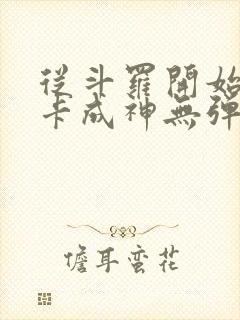 從斗羅開始
卡成神無彈
儋耳蛮花